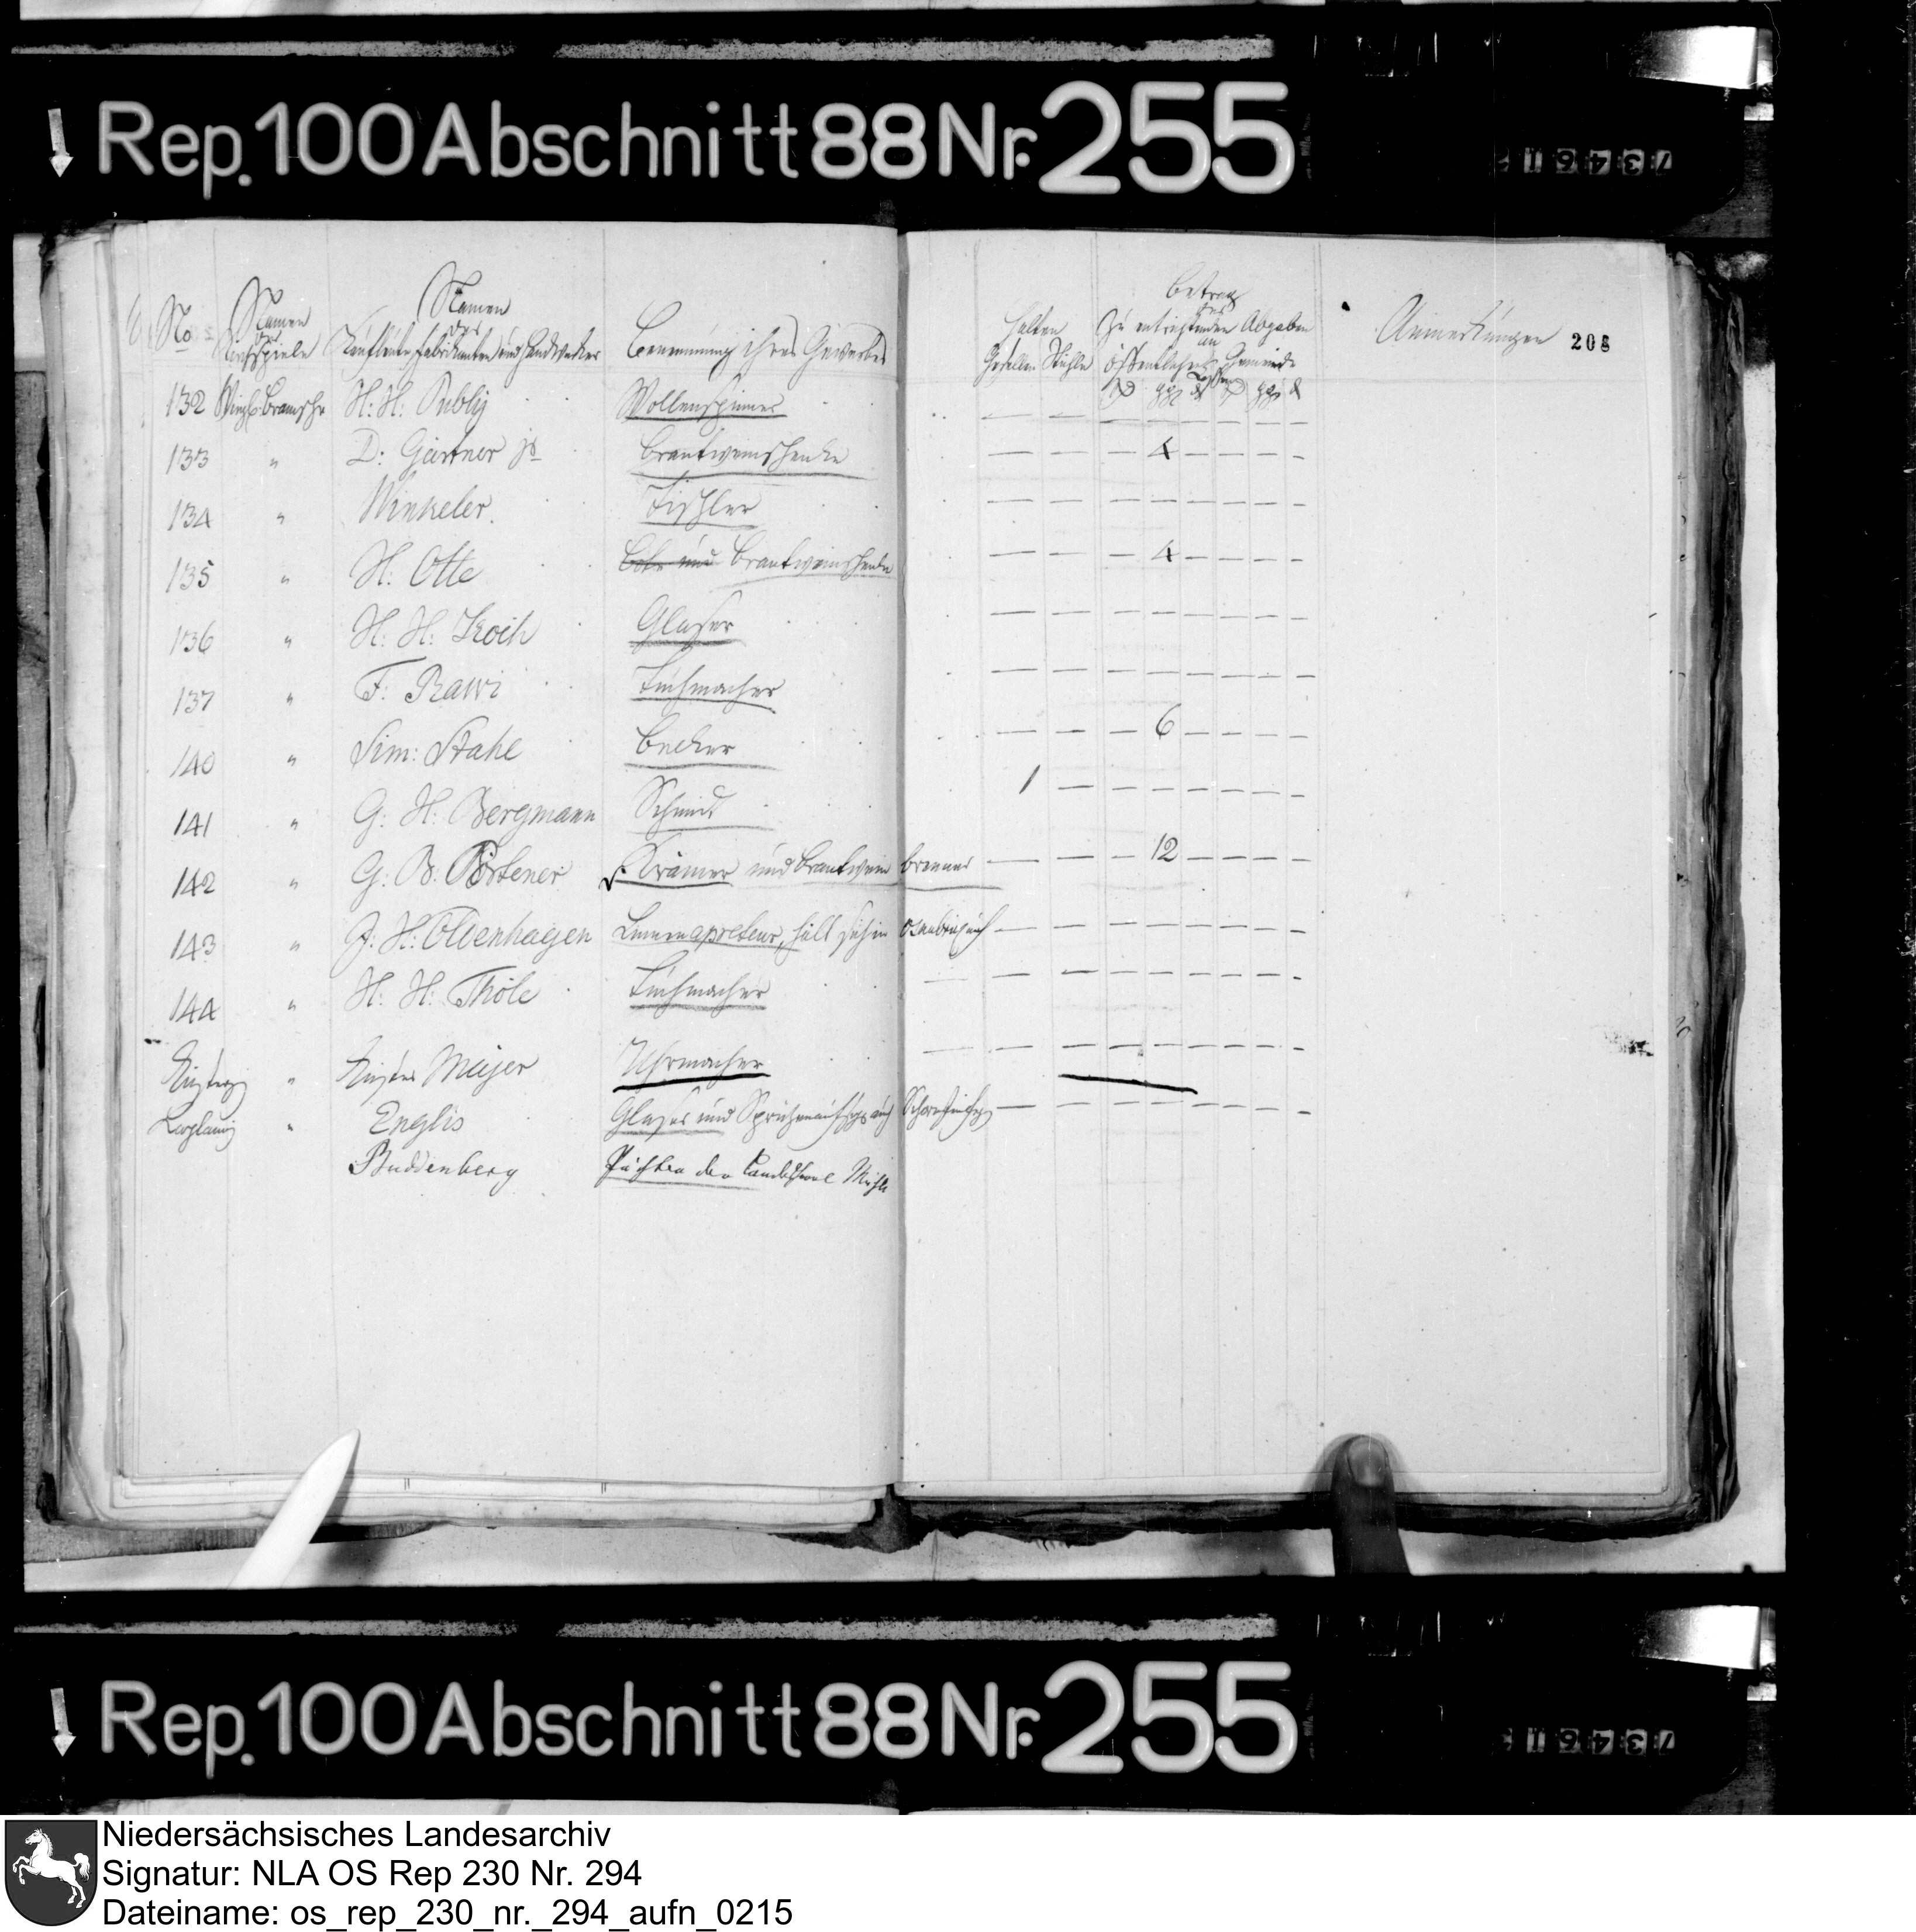 Rep. 100 Abschnitt 88 Nr. 255
No
Namen
der
Kirchspiele
Namen
der
Kaufleute, Fabrikanten und Handwerker
Benennung ihres Gewerbes
Halten
Gesellen Stühle
Betrag
der
zu entrichtenden Abgaben
an
öffentlichen Gemeinde
Anmerkungen
208
132 Bramsche H: H: Wollenspinner — — — — — — — —
133 " D: Gärtner jr Brantweinschenke — — — 4 — — — —
134 " Winkeler. Tischler — — — — — — — —
135 " H: Otte Bote und Brantweinschenke — — — 4 — — — —
136 " H: H: Koch Glaser — — — — — — — —
137 " F: Rawi Tuchmacher — — — — — — — —
140 " Sim: Stahl Becker — — — 6 — — — —
141 " G: H: Bergmann Schmid 1 — — — — — — —
142 " G: B: Pörtener Krämer und Brantwein brenner — — — 12 — — — —
143 " J: H: Oldenhagen Linnenapreteur, hält sich in Osnabrück auf — — — — — — — —
144 " H: H: Thöle Tuchmacher — — — — — — — —
" Küster Meijer Uhrmacher — — — — — — — —
" Englis Glaser und — — — — — — — —
Buddenberg Pächter der Mühle
Rep. 100 Abschnitt 88 Nr. 255
Niedersächsisches Landesarchiv
Signatur: NLA OS Rep 230 Nr. 294
Dateiname: os_rep_230_nr._294_aufn_0215